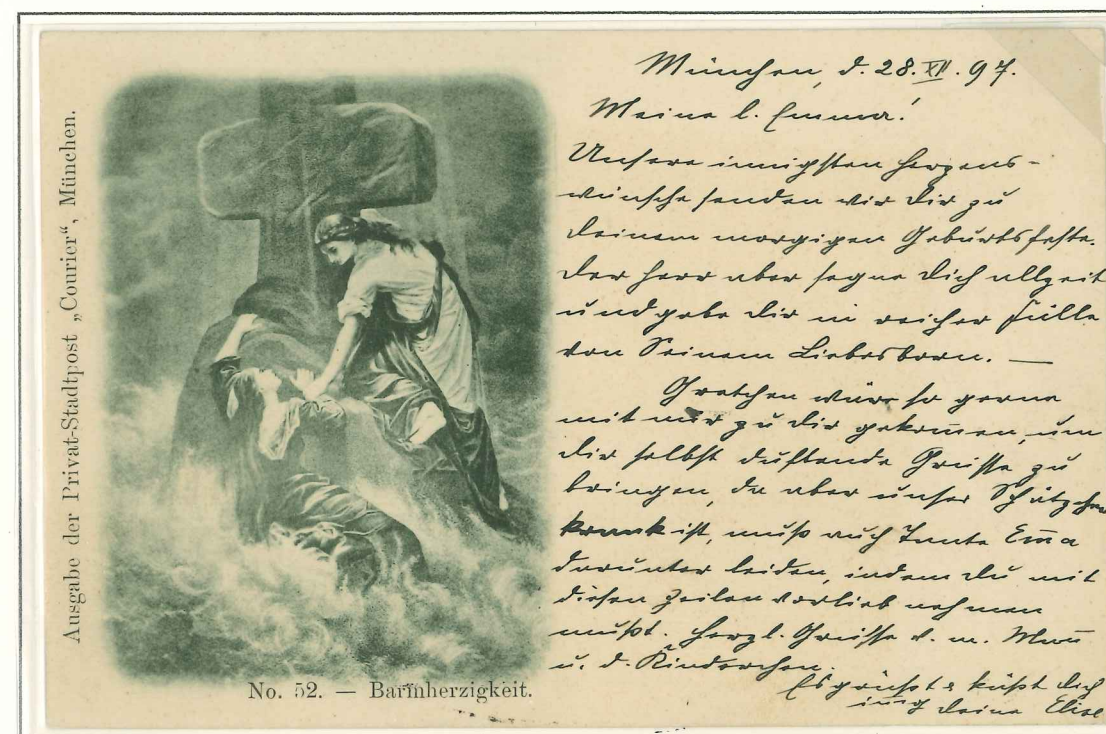 Ausgabe der Privat-Stadtpost „Courier“, München.
No. 52. — Barmherzigkeit.
München, d. 28. XII. 97.
Meine l. Emma!
Unsere innigsten Herzens-
wünsche senden wir Dir zu
Deinem morgigen Geburtsfeste.
Der Herr aber segne Dich allzeit
und gebe Dir in reicher Fülle
von Seinem Liebesborn. —
Gretchen wäre so gerne
mit mir zu Dir gekom̅en, um
Dir selbst duftende Grüsse zu
bringen, da aber unser Schätzchen
krank ist, muß auch Tante Em̅a
darunter leiden, indem Du mit
diesen Zeilen vorlieb nehmen
mußt. Herzl. Grüsse v. m. Man̅
u. d. Kinderchen.
Es grüßt & küßt Dich
innig Deine Elise